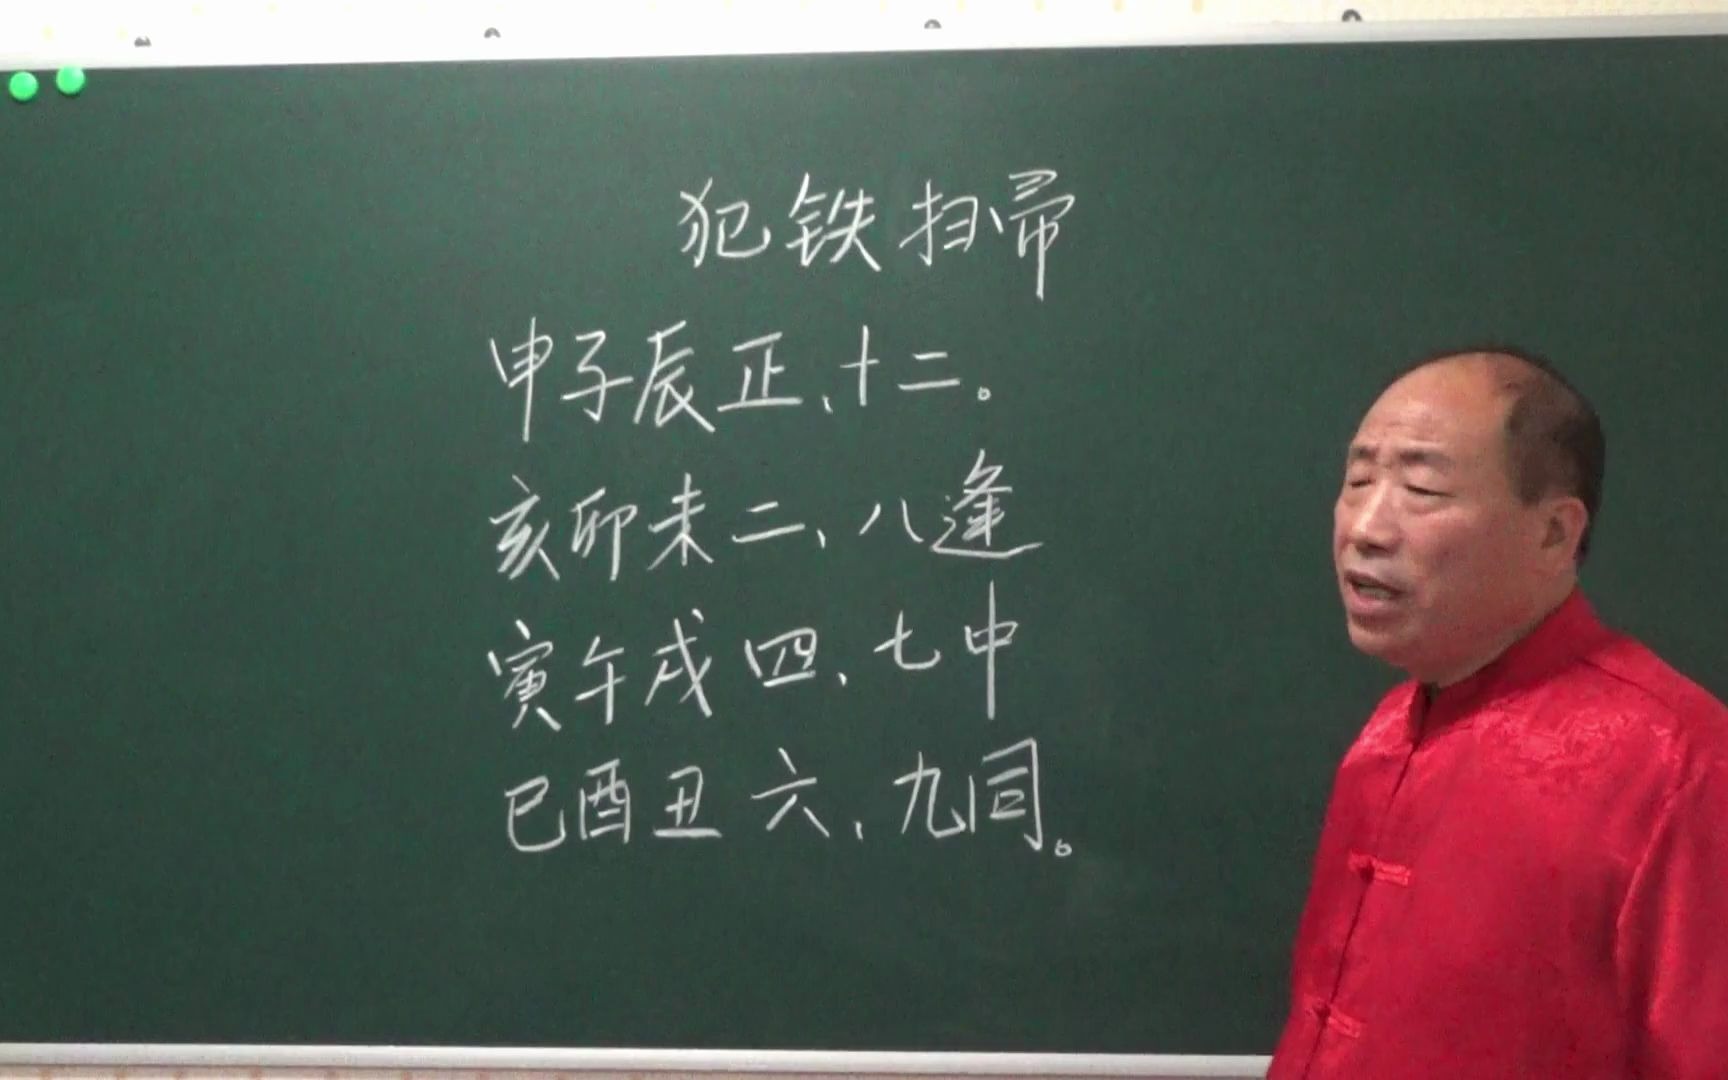 犯铁扫帚
申子辰正、十二。
亥卯未二、八逢
寅午戌四、七中
巳酉丑六、九同。